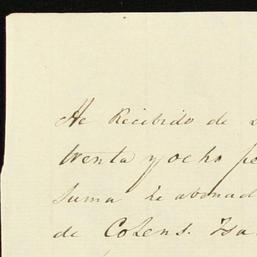 He Recibido de
treinta y ocho pe
suma he abonad
de Cohens. Isa